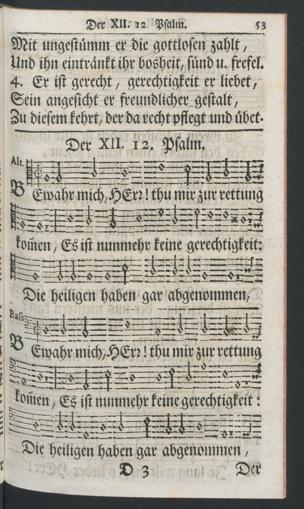 Der XII. 12. Psalm. 53
Mit ungestümm er die gottlosen zahlt,
Und ihn eintränkt ihr boßheit, sünd u. frefel.
4. Er ist gerecht, gerechtigkeit er liebet,
Sein angesicht er freundlicher gestalt,
Zu diesem kehrt, der da recht pflegt und übet.
Der XII. 12. Psalm.
Alt.
BEwahr mich, HErr! thu mir zur rettung
kom̃en, Es ist nunmehr keine gerechtigkeit:
Die heiligen haben gar abgenommen,
Bass.
BEwahr mich, HErr! thu mir zur rettung
kom̃en, Es ist nunmehr keine gerechtigkeit:
Die heiligen haben gar abgenommen,
D 3 Der